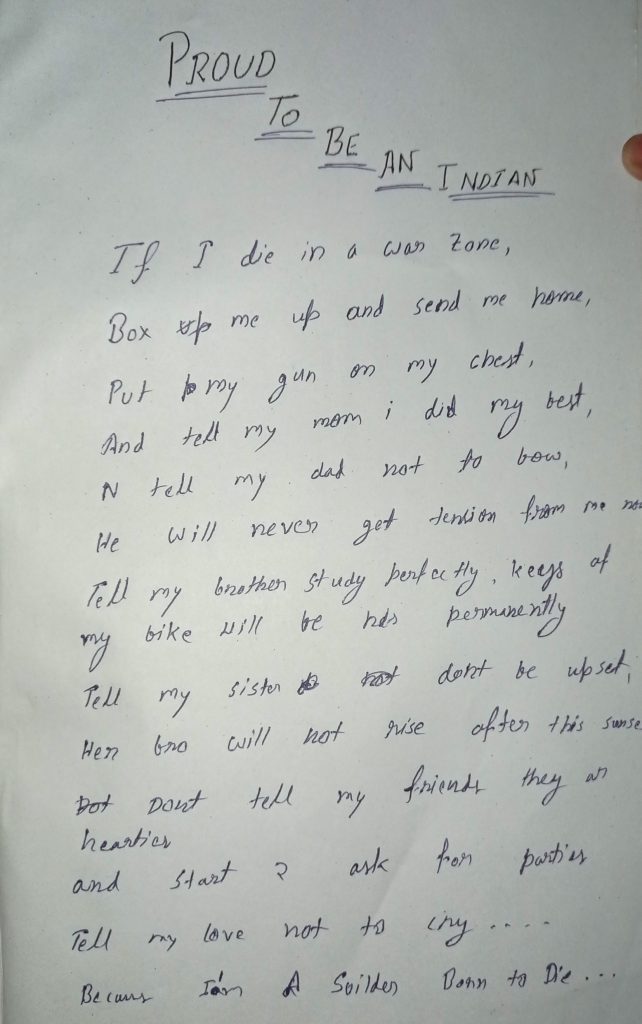 PROUD
TO
BE
AN
INDIAN
If I die in a war zone,
Box up me up and send me home,
Put my gun on my chest,
And tell my mom i did my best,
N tell my dad not to bow,
He will never get tension from me now
Tell my brother study perfectly, keys of
my bike will be his permanently
Tell my sister not dont be upset,
Her bro will not rise after this sunse
Dot Dont tell my friends they ar
hearties
and start 2 ask for parties
Tell my love not to cry ....
Becaus I'am A Soilder Born to Die ...